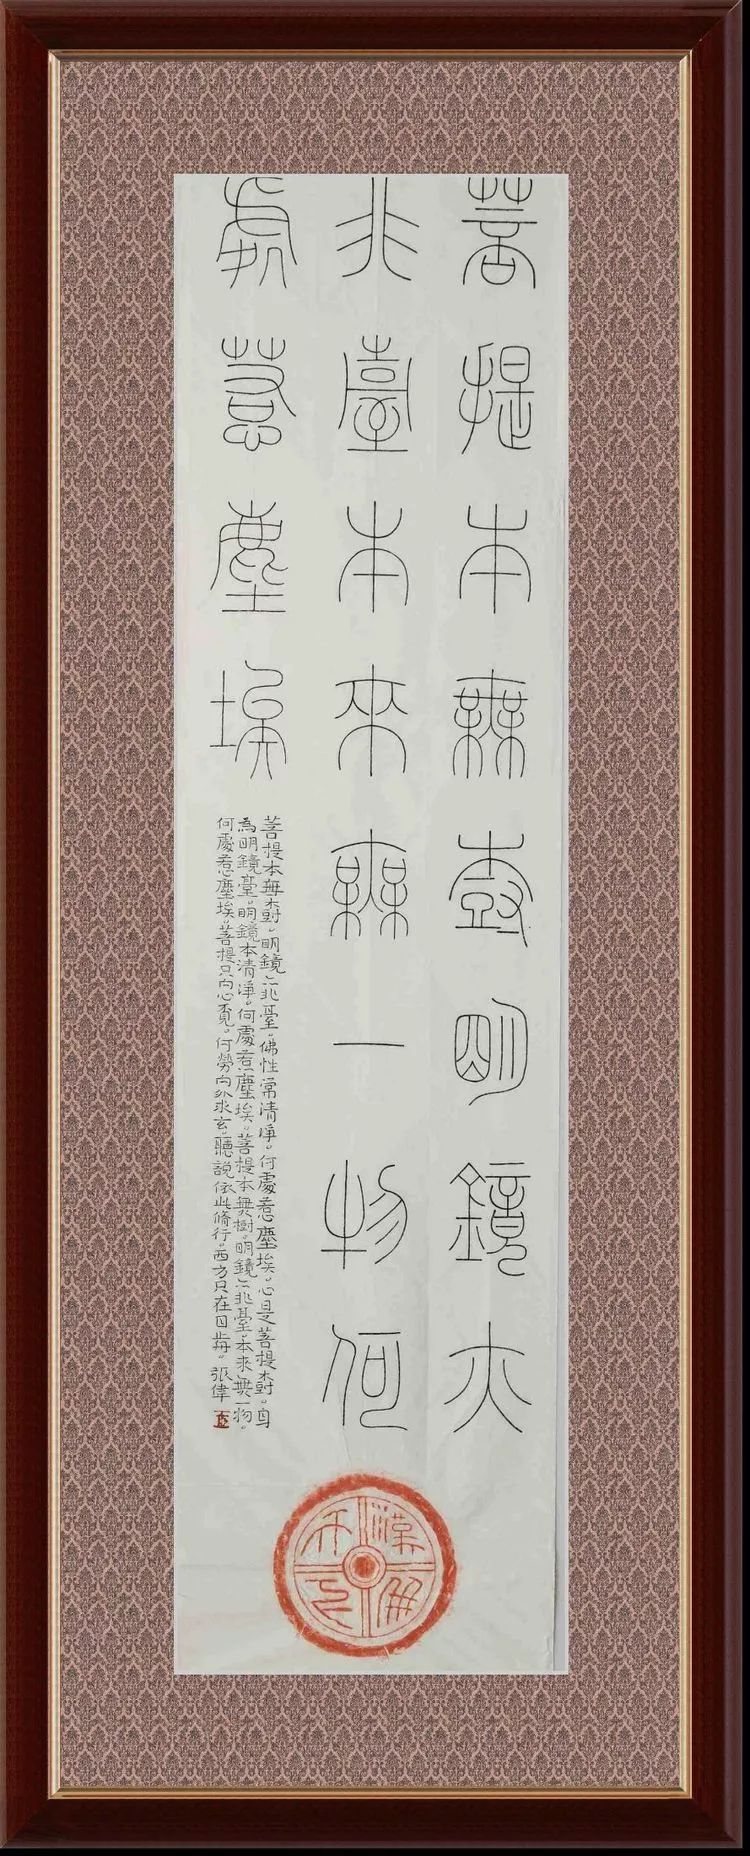 菩提本無樹明鏡亦
非臺本來無一物何
處惹塵埃
菩提本無樹。明鏡亦非臺。佛性常清淨。何處惹塵埃。心是菩提樹。身
為明鏡臺。明鏡本清淨。何處惹塵埃。菩提本無樹。明鏡亦非臺。本來無一物。
何處惹塵埃。菩提只向心覓。何勞向外求玄。聽說依此修行。西方只在目前。張偉
漢并
天下